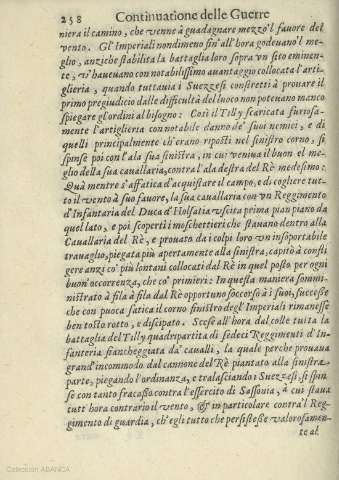 258 Continuatione delle Guerre
niera il camino, che venne à guadagnare mezzo'l fauore del
vento. Gl'Imperiali nondimeno fin' all'hora godeuano'l me-
glio, anziche stabilita la battaglia loro sopra vn sito eminen-
te, v'haueuano con notabilissimo auantaggio collocata l'arti-
glieria, quando tuttauia i Suezzesi constretti à prouare il
primo pregiudicio dalle difficultà del luoco non poteuano manco
spiegare gl'ordini al bisogno: Così il Tilly scaricata furiosa-
mente l'artiglieria con notabile danno de' suoi nemici, e di
quelli principalmente ch'erano riposti nel sinistro corno, si
spinse poi con l'ala sua sinistra, in cui veniua il buon el me-
glio della sua cauallaria, contra l'ala destra del Rè medesimo:
Quà mentre s'affatica d'acquistare il campo, e di cogliere tut-
to il vento à suo fauore, la sua cauallaria con vn Reggimento
d'Infantaria del Duca d'Holsatia vscita prima pian piano da
quel lato, e poi scoperti i moschettieri che stauano dentro alla
Cauallaria del Rè, e prouato da i colpi loro vn insoportabile
trauaglio, piegata più apertamente alla sinistra, capitò à confli
gere anzi co' più lontani collocati dal Rè in quel posto per ogni
buon' occorrenza, che co' primieri: In questa maniera sommi-
nistrato à fila à fila dal Rè opportuno soccorso à i suoi, successe
che con puoca fatica il corno sinistro degl'Imperiali rimanesse
ben tosto rotto, e dissipato. Scese all'hora dal colle tutta la
battaglia del Tilly quadripartita di sedeci Reggimenti d'In-
fanteria fiancheggiata da' caualli, la quale perche prouaua
grand'incommodo dal cannone del Rè piantato alla sinistra
parte, piegando l'ordinanza, e tralasciando i Suezzesi, si spin
se con tanto fracasso contra l'essercito di Sassonia, à cui staua
tutt' hora contrario il vento, & in particolare contra'l Reg-
gimento di guardia, ch'egli tutto che persistesse valorosamen-
te al
Colección ABANCA